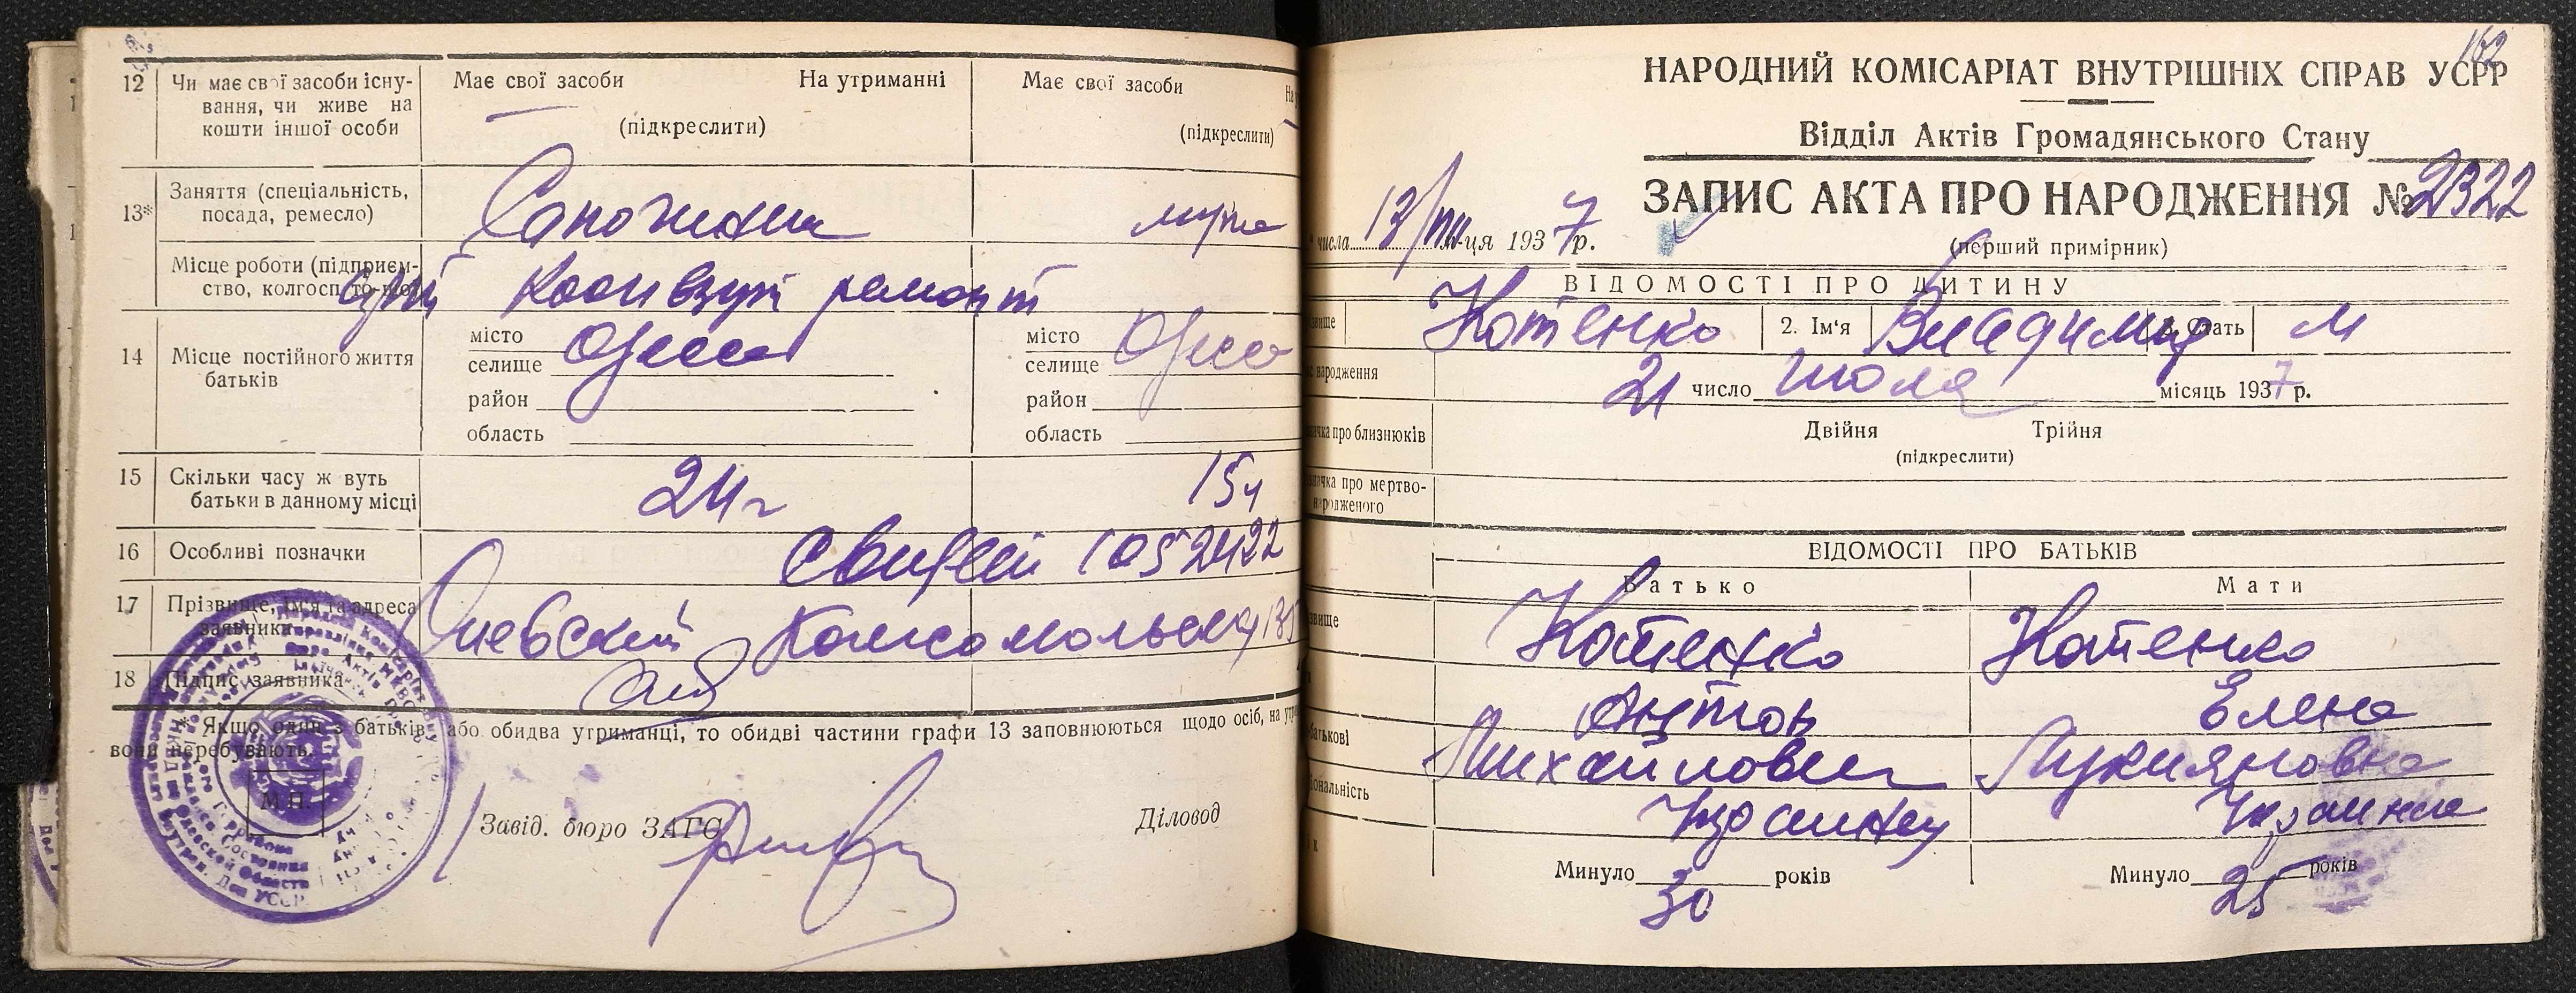 12 Чи має свої засоби існу-
вання, чи живе на
кошти іншої особи
Має свої засоби На утриманні
(підкреслити)
Має свої засоби
(підкреслити)
13* Заняття (спеціальність,
посада, ремесло)
Сапожник
мужа
Місце роботи (підприєм-
ство, колгосп
ремонт
14 Місце постійного життя
батьків
місто
селище Одесса
район
область
місто
селище
район
область
15 Скільки часу ж вуть
батьки в данному місці
24 г
15
16 Особливі позначки
1052422
17 Прізвище, ім'я та адреса
заявника
18 Підпис заявника
* Якщо один з батьків або обидва утриманці, то обидві частини графи 13 заповнюються щодо осіб, на
вони перебувають.
М.П.
Завід. бюро ЗАГС
Діловод
162
НАРОДНИЙ КОМІСАРІАТ ВНУТРІШНІХ СПРАВ УСРР
Відділ Актів Громадянського Стану
ЗАПИС АКТА ПРО НАРОДЖЕННЯ № 2322
(перший примірник)
числа 13/VIII м-ця 1937 р.
ВІДОМОСТІ ПРО ДИТИНУ
Котенко 2. Ім'я Владимир 3. Стать М
народження 21 число июля місяць 1937 р.
про близнюків Двійня Трійня
(підкреслити)
про мертво-
народженого
ВІДОМОСТІ ПРО БАТЬКІВ
Батько Мати
Котенко Котенко
Антон Елена
батькові Михайлович Лукияновна
Украинец Украинка
Минуло 30 років Минуло 25 років